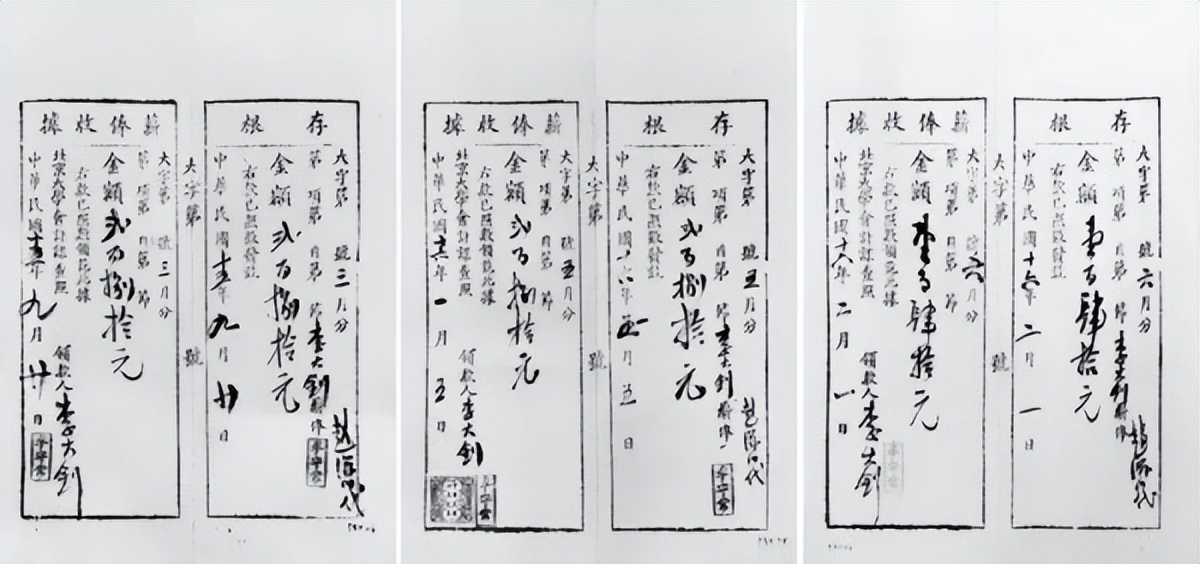 存根
大字第 號三月分
第 項第 目第 節李大釗薪俸
代
李守常
金額弍百捌拾元
右款已照數發訖
中華民國十五年九月廿日
大字第 號
薪俸收據
大字第 號三月分
第 項第 目第 節
金額弍百捌拾元
右款已照數領訖此據
北京大學會計課查照
領款人李大釗
李守常
中華民國十五年九月廿日
存根
大字第 號五月分
第 項第 目第 節李大釗薪俸
代
李守常
金額弍百捌拾元
右款已照數發訖
中華民國十六年 月五日
大字第 號
薪俸收據
大字第 號五月分
第 項第 目第 節
金額弍百捌拾元
右款已照數領訖此據
北京大學會計課查照
領款人李大釗
李守常
中華民國十六年一月五日
存根
大字第 號六月分
第 項第 目第 節李大釗薪俸
代
金額壹百肆拾元
右款已照數發訖
中華民國十六年二月一日
大字第 號
薪俸收據
大字第 號六月分
第 項第 目第 節
金額壹百肆拾元
右款已照數領訖此據
北京大學會計課查照
領款人李大釗
李守常
中華民國十六年二月一日